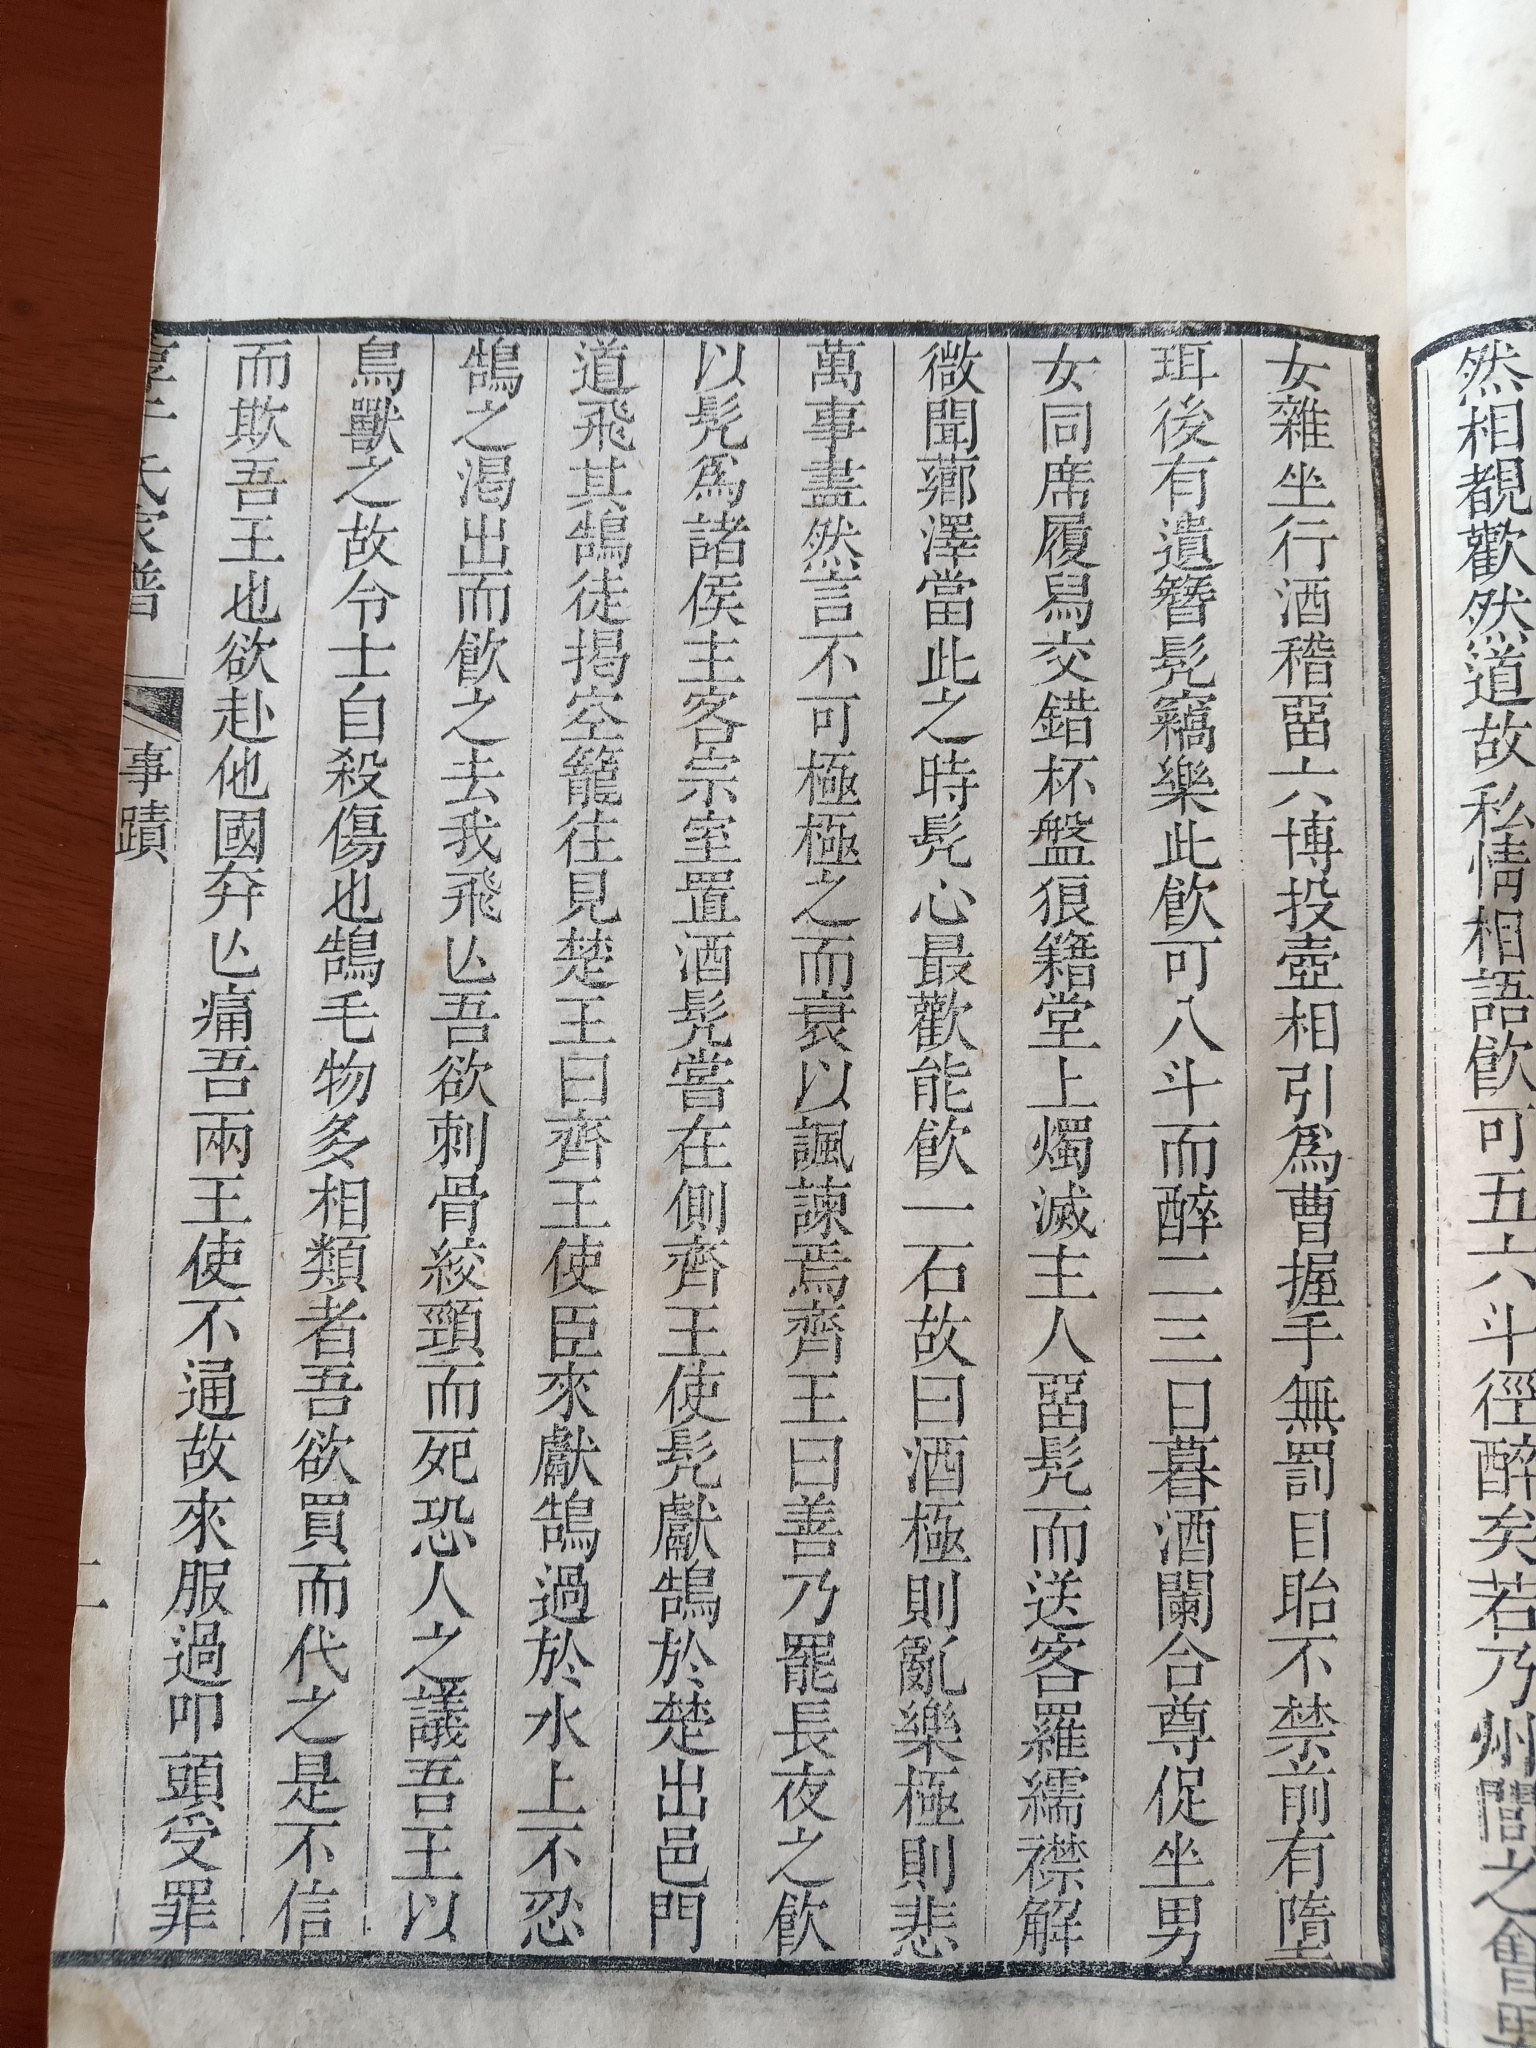 然相覩歡然道故私情相語飮可五六斗徑醉矣若乃州閭之會男
女雜坐行酒稽畱六博投壺相引爲曹握手無罰目眙不禁前有墮
珥後有遺簪髠竊樂此飮可八斗而醉二三日暮酒闌合尊促坐男
女同席履舄交錯杯盤狼籍堂上燭滅主人畱髠而送客羅繻襟解
微聞薌澤當此之時髠心最歡能飮一石故曰酒極則亂樂極則悲
萬事盡然言不可極極之而衰以諷諫焉齊王曰善乃罷長夜之飮
以髠爲諸侯主客宗室置酒髠嘗在側齊王使髠獻鵠於楚出邑門
道飛其鵠徒揭空籠往見楚王曰齊王使臣來獻鵠過於水上不忍
鵠之渴出而飮之去我飛亾吾欲刺骨絞頸而死恐人之議吾王以
鳥獸之故令士自殺傷也鵠毛物多相類者吾欲買而代之是不信
而欺吾王也欲赴他國奔亾痛吾兩王使不通故來服過叩頭受罪
氏家譜 事蹟 二